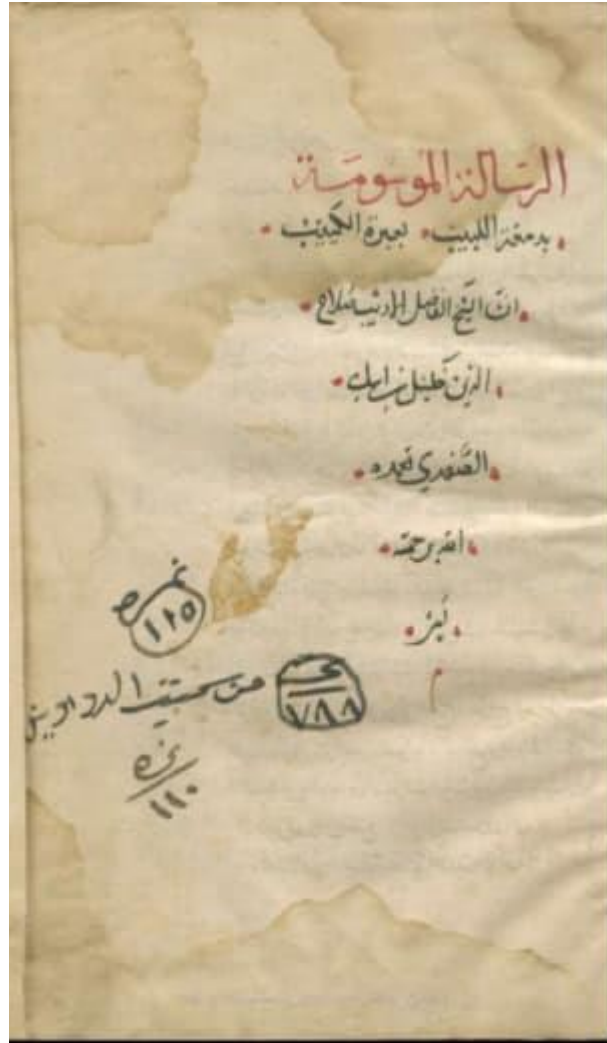 الرسالة الموسومة
بدمعة اللبيب بعبرة الكئيب
الشيخ الفاضل الاديب صلاح
الدين خليل بن ايبك
الصفدي تغمده
الله برحمته
م
نمره
١١٥
٧٨٨
من الدواوين
نمره
١١٠